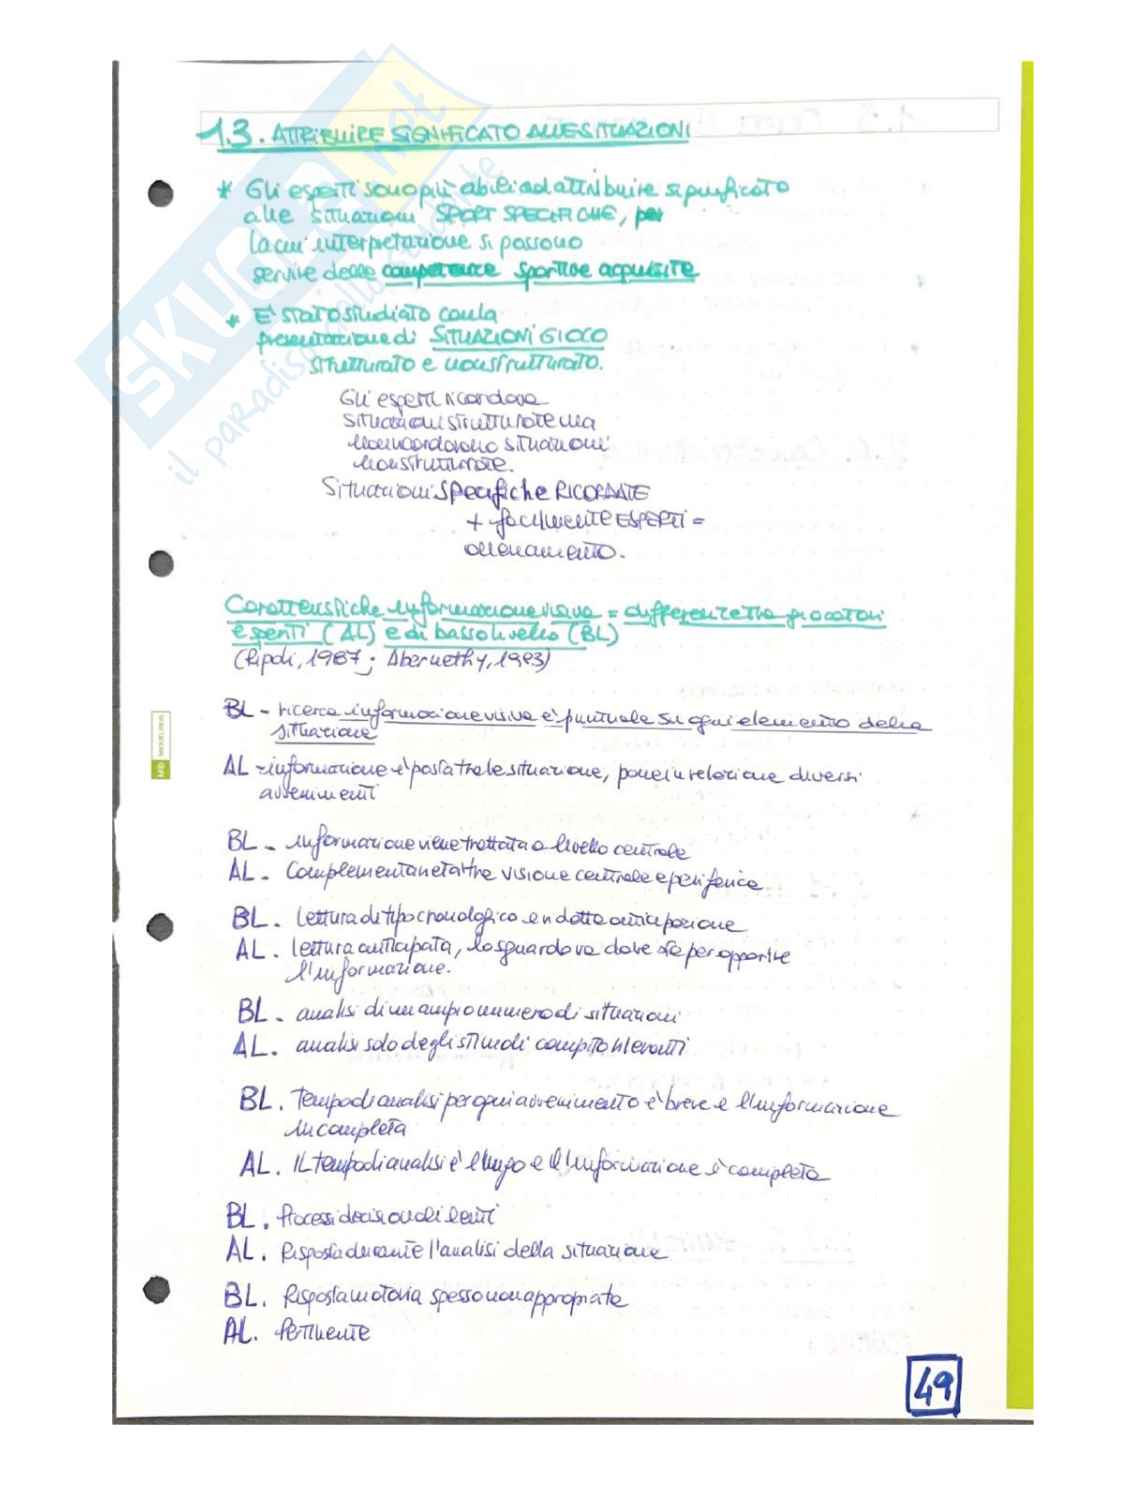 1.3. ATTRIBUIRE SIGNIFICATO ALLE SITUAZIONI
* Gli esperti sono più abili ad attribuire significato
alle situazioni SPORT SPECIFICHE, per
la cui interpretazione si possono
servire delle competenze sportive acquisite
* E' stato studiato con la
presentazione di SITUAZIONI GIOCO
strutturato e non strutturato.
Gli esperti ricordava
situazioni strutturate ma
non ricordavano situazioni
non strutturate.
Situazioni specifiche RICORDATE
+ facilmente ESPERTI =
allenamento.
Caratteristiche informazione visiva = differenze tra giocatori
esperti (AL) e di basso livello (BL)
(Ripoli, 1987; Abernethy, 1993)
BL - ricerca informazione visiva è puntuale su ogni elemento della
situazione
AL - informazione è posta tra le situazione, pone in relazione diversi
avvenimenti
BL - informazione viene trattata a livello centrale
AL - Complementarietà tra visione centrale e periferica
BL. lettura di tipo cronologico e ridotta anticipazione
AL. lettura anticipata, lo sguardo va dove sta per apparire
l'informazione.
BL - analisi di un ampio numero di situazioni
AL. analisi solo degli stimoli compito rilevanti
BL. Tempo di analisi per ogni avvenimento è breve e l'informazione
incompleta
AL. Il tempo di analisi è lungo e l'informazione è completa
BL. Processi decisionali lenti
AL. Risposta durante l'analisi della situazione
BL. Risposta motoria spesso non appropriata
AL. Pertinente
49
SKUOLA.net
il paradiso dello studente